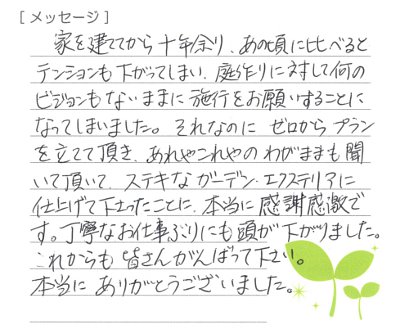 [メッセージ]
家を建ててから十年余り、あの頃に比べると
テンションも下がってしまい、庭作りに対して何の
ビジョンもないままに施行をお願いすることに
なってしまいました。それなのに ゼロからプラン
を立てて頂き、あれやこれやの わがままも聞
いて頂いて、ステキなガーデン・エクステリアに
仕上げて下さったことに、本当に感謝感激で
す。丁寧なお仕事ぶりにも頭が下がりました。
これからも皆さんがんばって下さい。
本当に ありがとうございました。